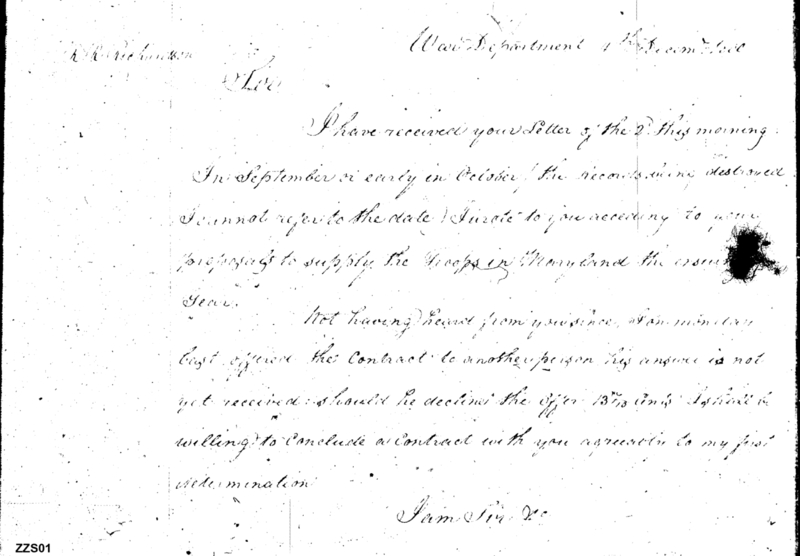 War Department 4th Decemr 1800
Richardson
Sir
I have received your Letter of the 2d this morning.
In September or early in October (the records being destroyed
I cannot refer to the date) I wrote to you acceding to your
proposals to supply the Troops in Maryland the ensuing
Year.
Not having heard from you since, I on monday
last offered the Contract to another person his answer is not
yet received: should he decline the offer I shall be
willing to Conclude a Contract with you agreeable to my first
determination
I am Sir &c
ZZS01